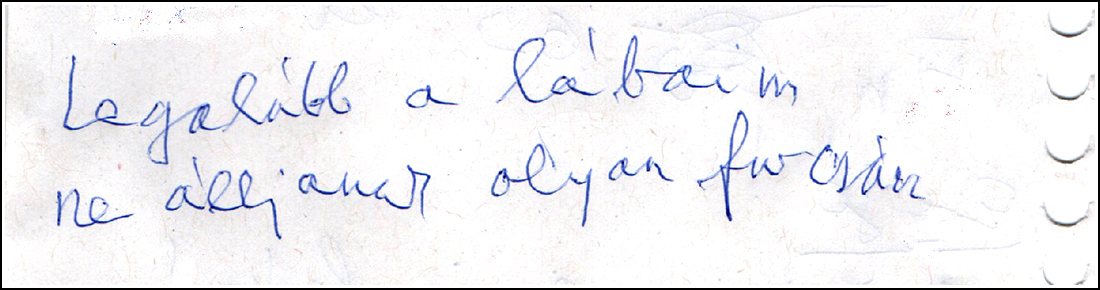 Legalább a lábaim
ne álljanak olyan furcsán